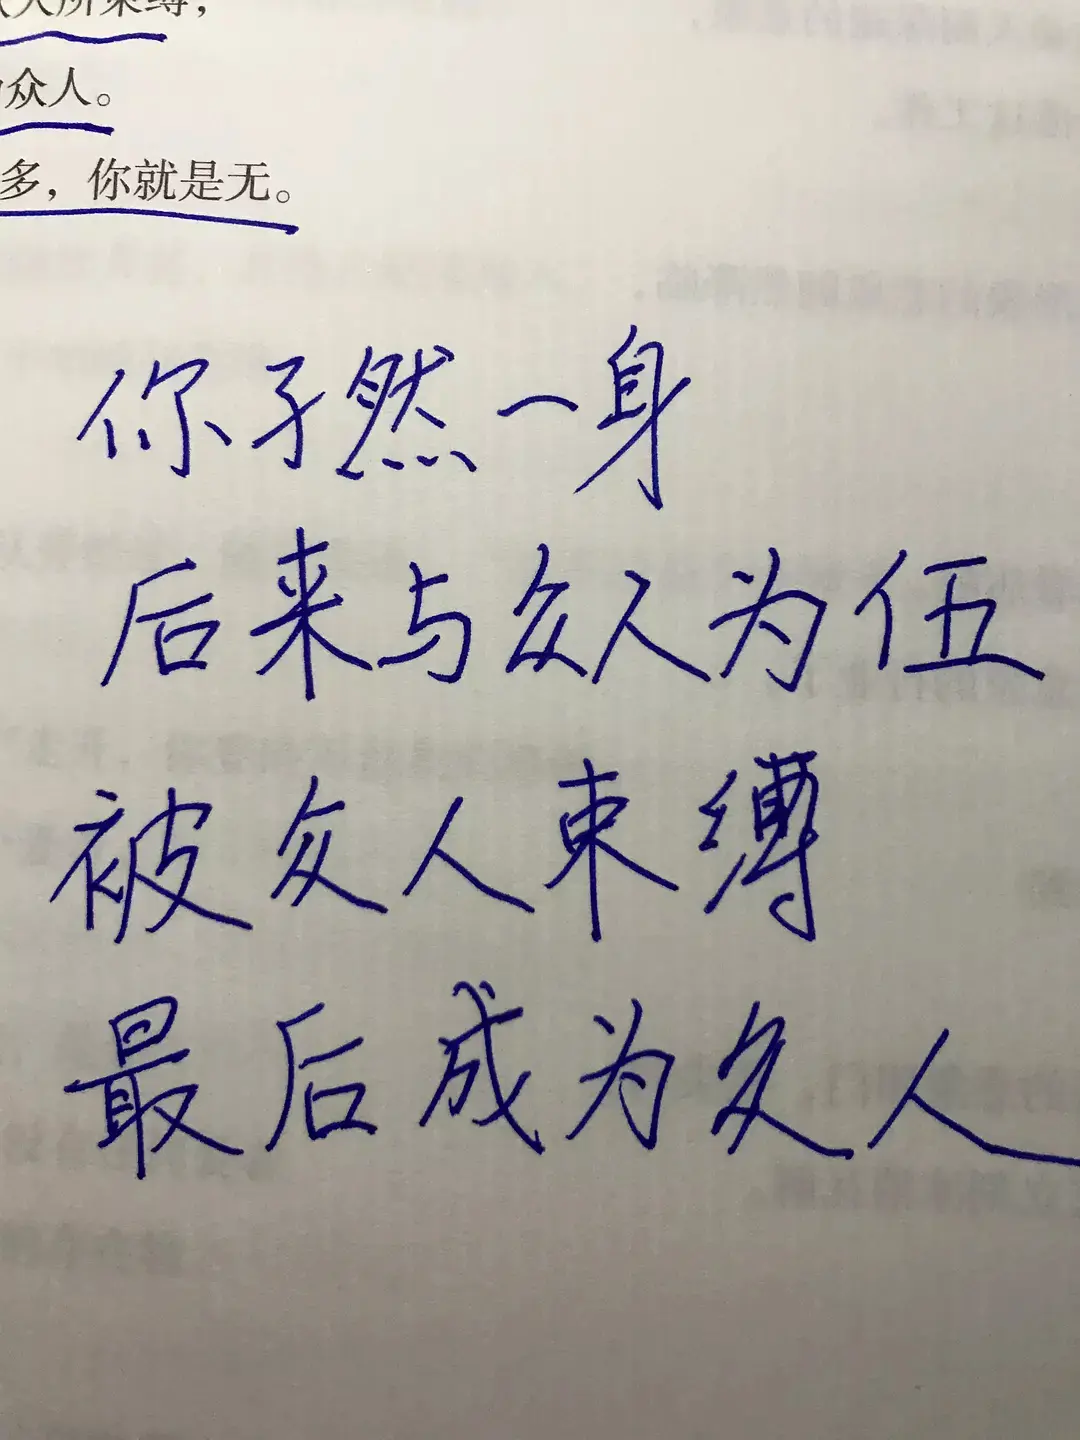 人所束缚，
众人。
多，你就是无。
你孑然一身
后来与众人为伍
被众人束缚
最后成为众人